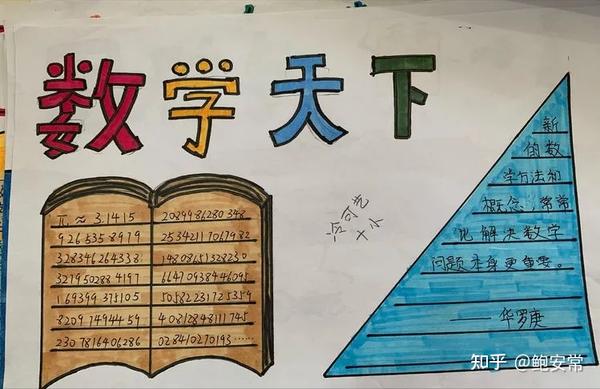 数学天下
π ≈ 3.1415
9265358979
328346264338
3279502884197
169399375105
82097494459
2307816406286
2089986280348
25342117067982
14808651328230
66470938446095
50582231725359
40812848111745
028410270193······
新
的数
学方法和
概念,常常
比解决数学
问题本身更重要。
——华罗庚
知乎 @鲍安常